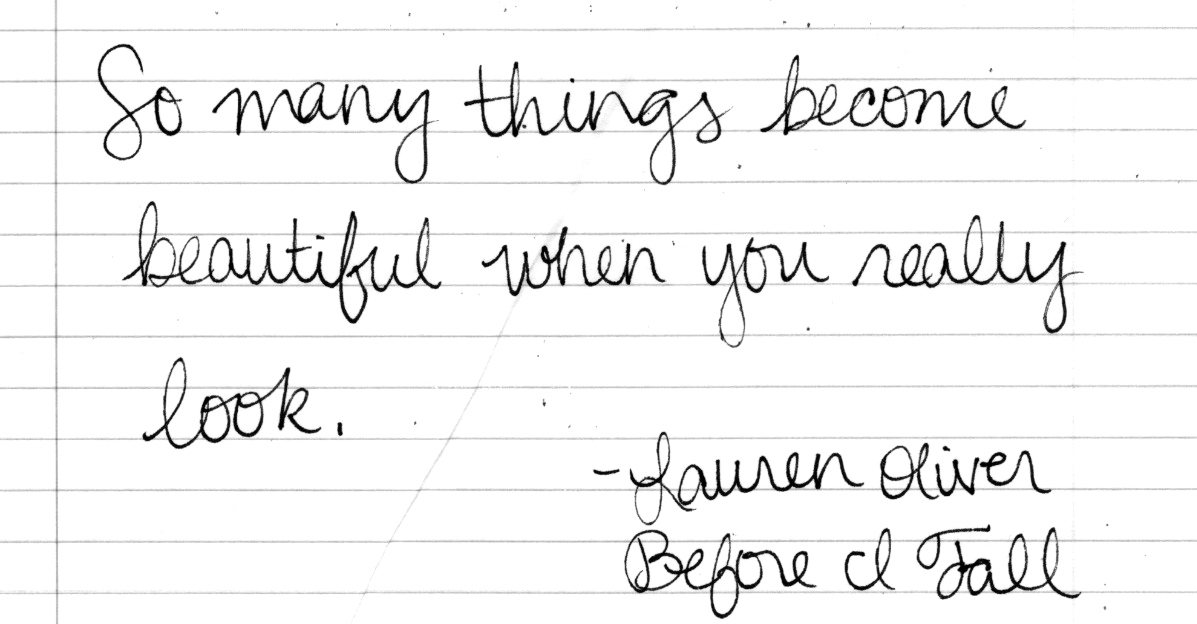 So many things become
beautiful when you really
look.
-Lauren Oliver
Before I Fall